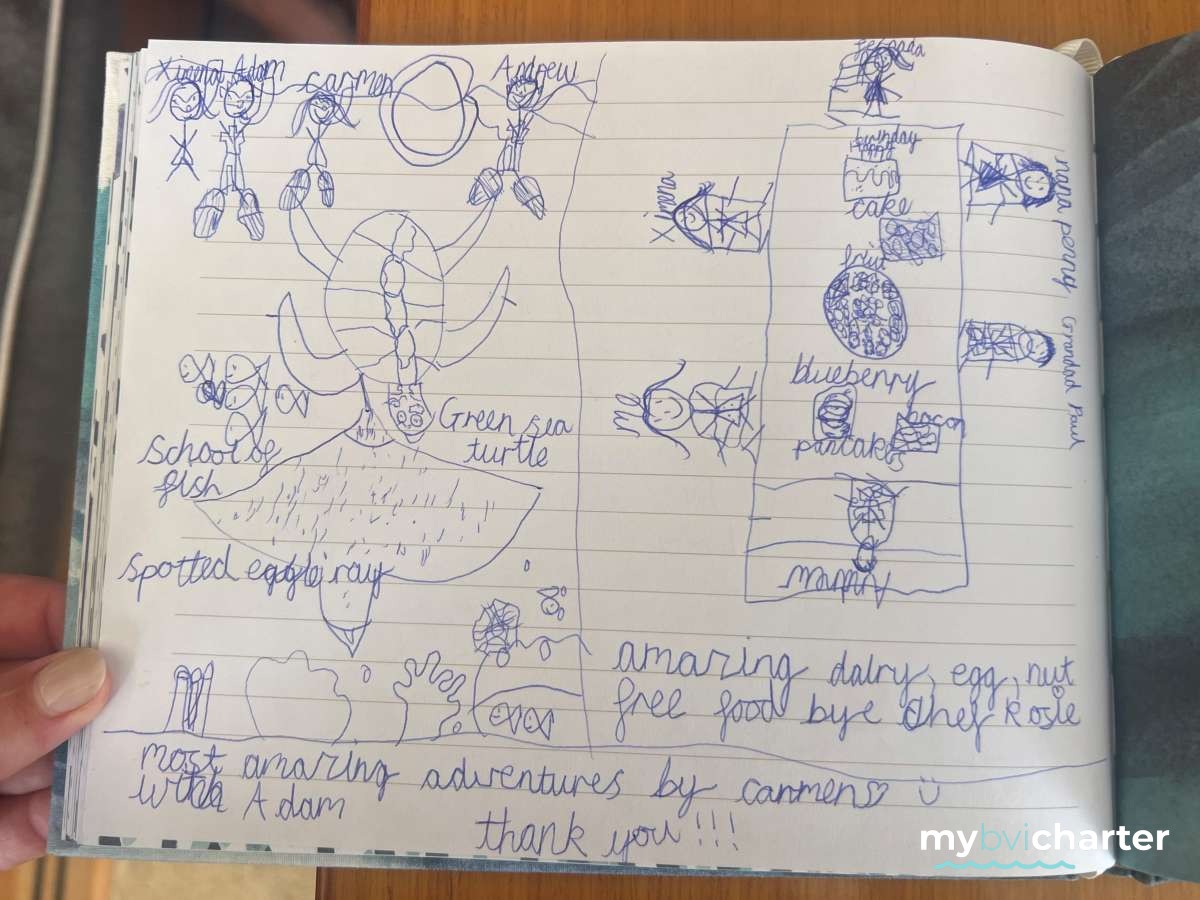 Ximena Adam
Carmen
Andrew
Green sea
turtle
School of
fish
Spotted eagle ray
birthday
happy
cake
fruit
Ximena
nana penny
Grandad Paul
me
blueberry
pancakes
bacon
Andrew
amazing dairy, egg, nut
free food bye chef Rosie
most amazing adventures by carmen
with Adam
thank you!!!
mybvicharter